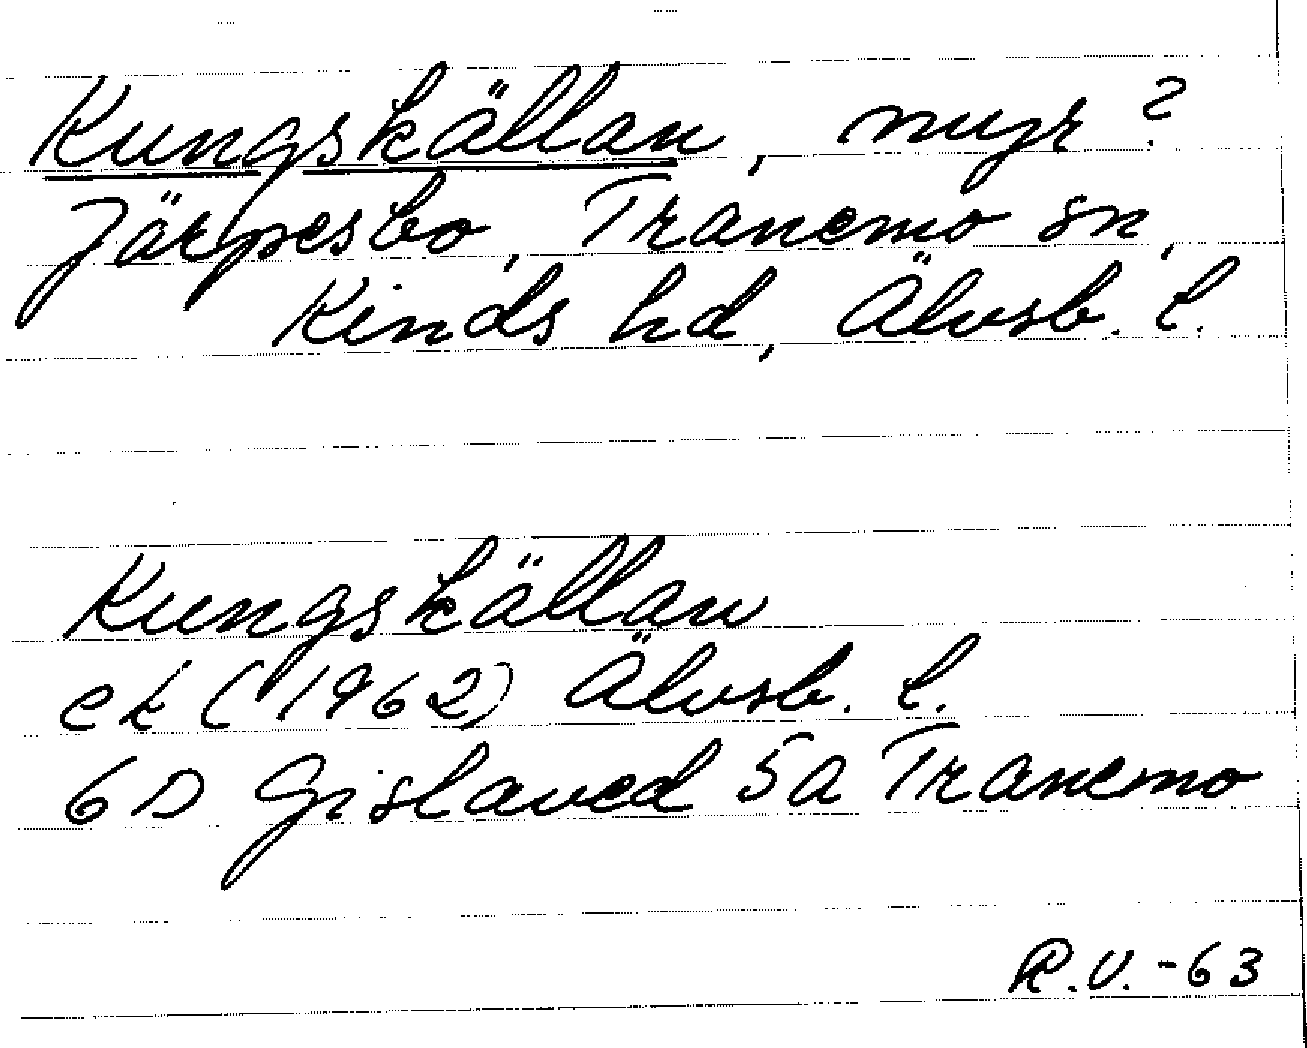 Kungskällan, myr?
Järpesbo, Tranemo sn,
Kinds hd, Älvsb. l.
Kungskällan
ek (1962) Älvsb. l.
6D Gislaved 5a Tranemo
R.V. -63